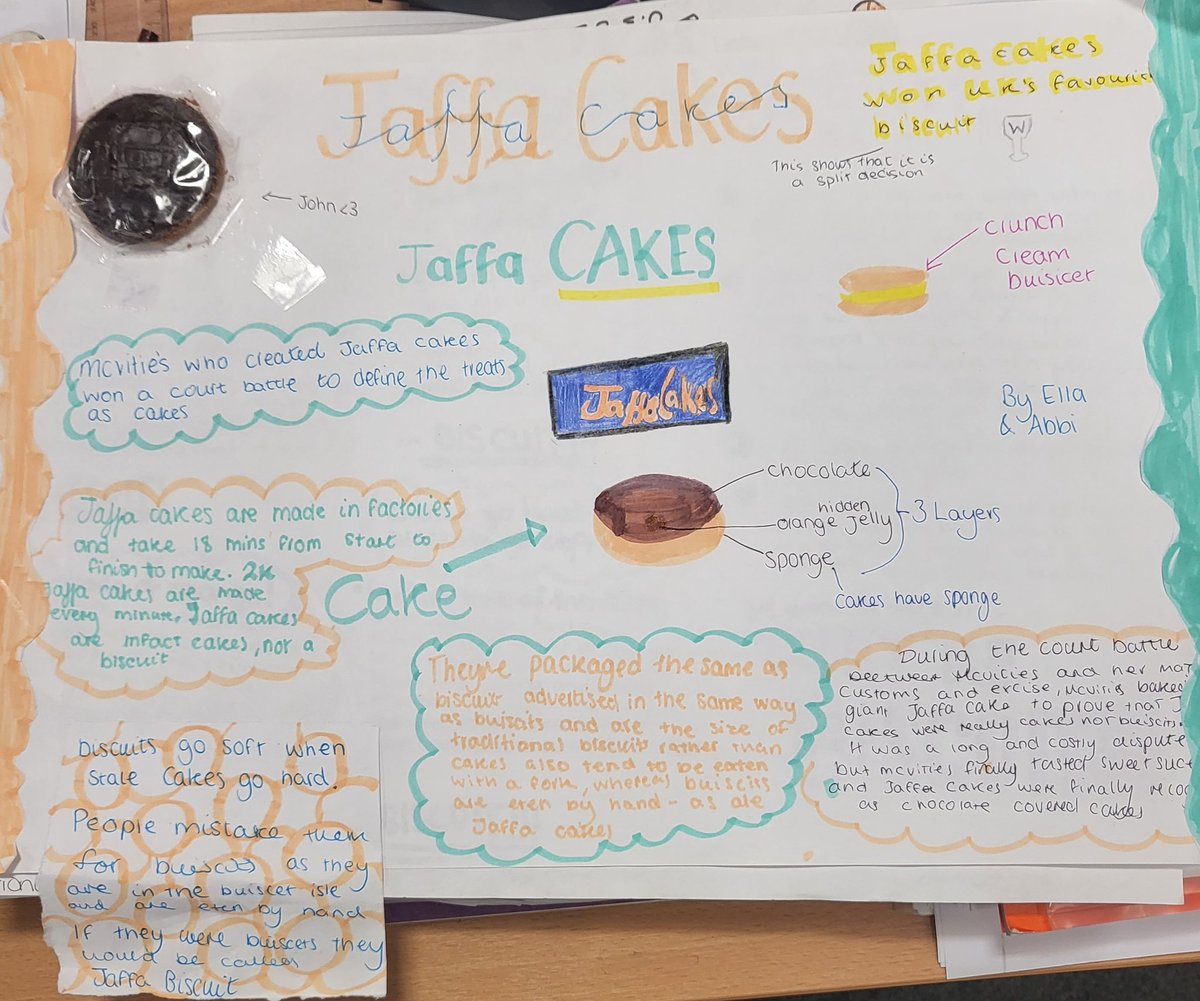 Jaffa Cakes
Jaffa Cakes
Jaffa cakes
won UK's favourit
biscuit
W
This shows that it is
a split decision
← John<3
Jaffa CAKES
Crunch
Cream
buisicer
Mcvitie's who created Jaffa cakes
won a court battle to define the treats
as cakes
Jaffa Cakes
By Ella
& Abbi
chocolate
hidden
orange jelly
sponge
3 Layers
Cakes have sponge
Jaffa cakes are made in factories
and take 18 mins from start to
finish to make. 2K
Jaffa cakes are made
every minute. Jaffa cakes
are infact cakes, not a
biscuit
Cake
They're packaged the same as
biscuit advertised in the same way
as buisits and are the size of
traditional biscuits rather than
cakes also tend to be eaten
with a fork, whereas buiscits
are eten by hand - as are
Jaffa cakes
During the court battle
beetween Mcvities and her maj
Customs and excise, Mcvities baked
giant Jaffa Cake to prove that J
cakes were really cakes not buiscits.
It was a long and costly dispute
but mcvities finally tasted sweet suc
and Jaffa Cakes were finally reco
as chocolate covered cakes
Biscuits go soft when
stale Cakes go hard.
People mistake them
for buiscits as they
are in the buiscet isle
and are eten by hand
If they were buiscets they
would be called
Jaffa Biscuit